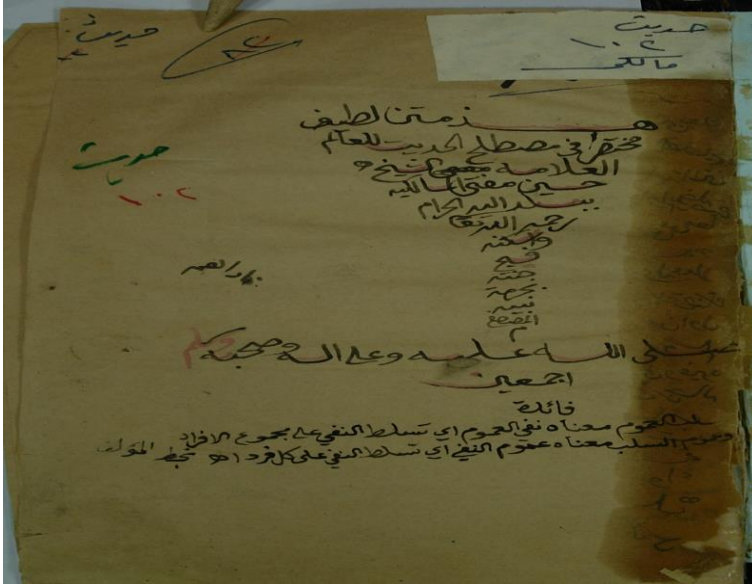 حديث
١٠٢
مالكي
حديث
حديث
١٠٢
هذا متن لطيف
مختصر في مصطلح الحديث للعالم
العلامة الشيخ
حسين مفتي المالكية
ببلد الله الحرام
رحمه الله تعالى
واسكنه
فسيح
جنته
بجهة
نبيه
المصطفى
م
صلى الله عليه وعلى اله وصحبه وسلم
اجمعين
فائدة
سلب العموم معناه نفي العموم اي تسلط النفي على مجموع الافراد
وعموم السلب معناه عموم النفي اي تسلط النفي على كل فرد اه بخط المؤلف